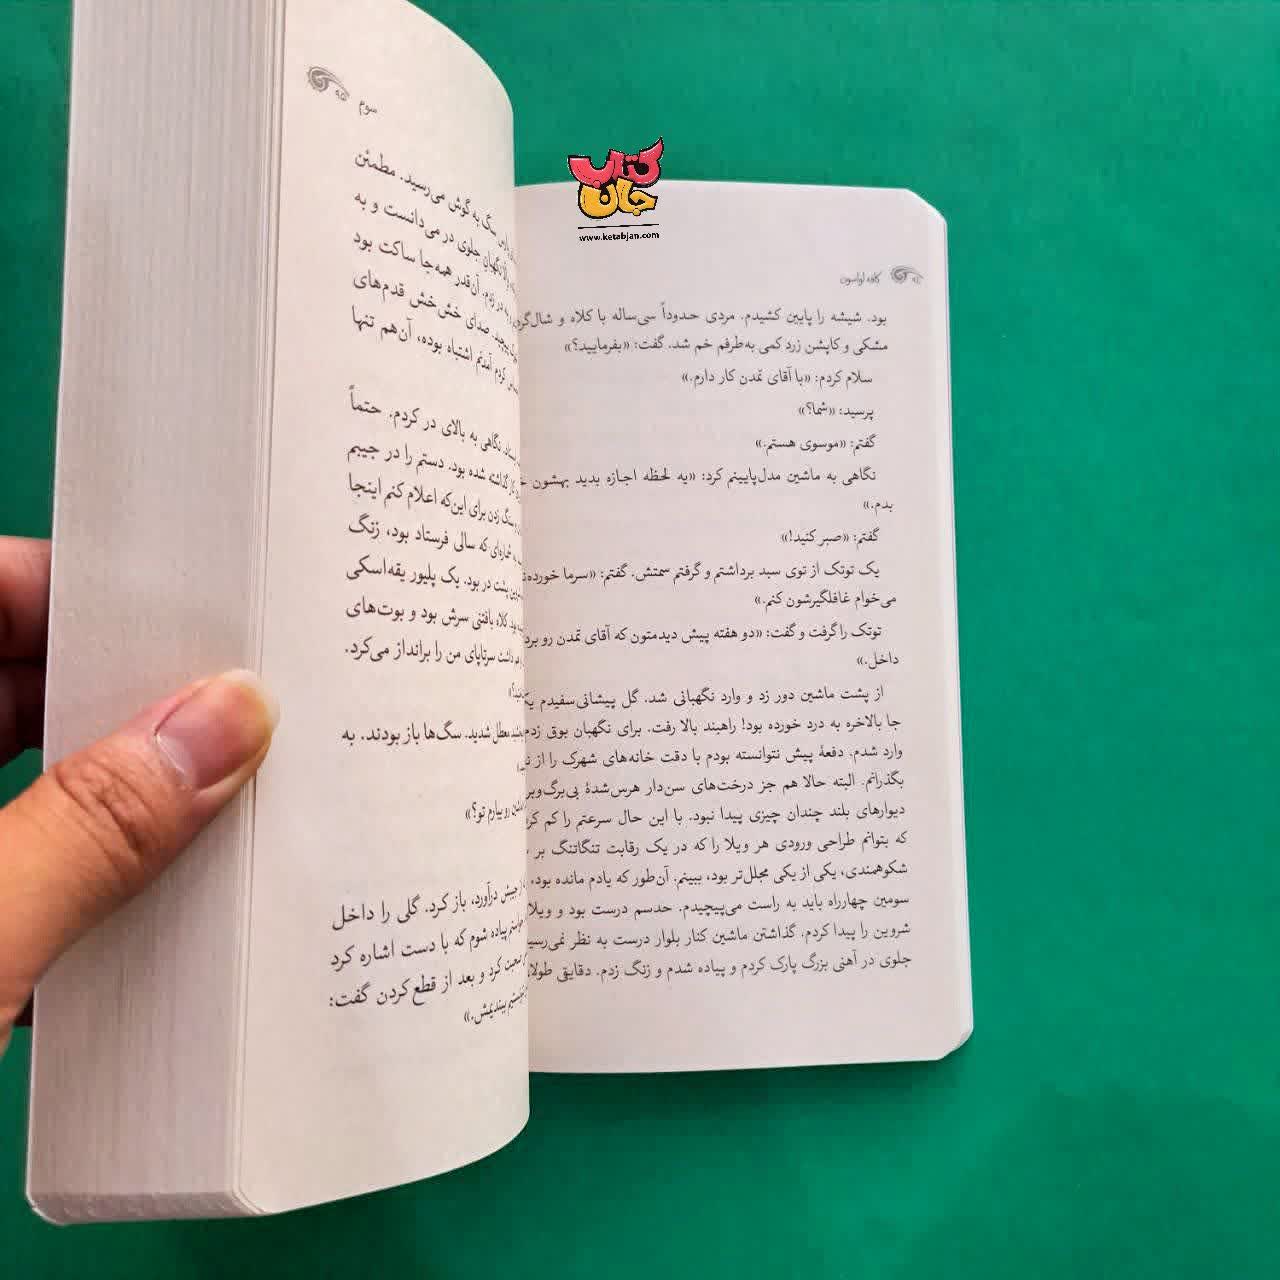 کتاب
جان
www.ketabjan.com
کافه لواسون
بود. شیشه را پایین کشیدم. مردی حدوداً سی‌ساله با کلاه و شال‌گرد
مشکی و کاپشن زرد کمی به‌طرفم خم شد. گفت: «بفرمایید؟»
سلام کردم: «با آقای تمدن کار دارم.»
پرسید: «شما؟»
گفتم: «موسوی هستم.»
نگاهی به ماشین مدل‌پایینم کرد: «یه لحظه اجازه بدید بهشون
بدم.»
گفتم: «صبر کنید!»
یک توتک از توی سبد برداشتم و گرفتم سمتش. گفتم: «سرما خورده‌ن
می‌خوام غافلگیرشون کنم.»
توتک را گرفت و گفت: «دو هفته پیش دیدمتون که آقای تمدن رو برد
داخل.»
از پشت ماشین دور زد و وارد نگهبانی شد. گل پیشانی‌سفیدم یک
جا بالاخره به درد خورده بود! راهبند بالا رفت. برای نگهبان بوق زدم
وارد شدم. دفعهٔ پیش نتوانسته بودم با دقت خانه‌های شهرک را از
بگذرانم. البته حالا هم جز درخت‌های سن‌دار هرس‌شدهٔ بی‌برگ‌وبر
دیوارهای بلند چندان چیزی پیدا نبود. با این حال سرعتم را کم کرد
که بتوانم طراحی ورودی هر ویلا را که در یک رقابت تنگاتنگ بر
شکوهمندی، یکی از یکی مجلل‌تر بود، ببینم. آن‌طور که یادم مانده بود،
سومین چهارراه باید به راست می‌پیچیدم. حدسم درست بود و ویلا
شروین را پیدا کردم. گذاشتن ماشین کنار بلوار درست به نظر نمی‌رسید
جلوی در آهنی بزرگ پارک کردم و پیاده شدم و زنگ زدم. دقایقی طولا
سوم ۹۵
سگ به گوش می‌رسید. مطمئن
نگهبان جلوی در می‌دانست و به
در زدم. آن‌قدر همه‌جا ساکت بود
پیچید. صدای خش‌خش قدم‌های
کردم آمدنم اشتباه بوده، آن‌هم تنها
نگاهی به بالای در کردم. حتماً
گذاشته شده بود. دستم را در جیبم
زنگ زدن برای این‌که اعلام کنم اینجا
شماره‌ای که سالی فرستاد بود، زنگ
پشت در بود. یک پلیور یقه‌اسکی
بود. کلاه بافتنی سرش بود و بوت‌های
داشت سرتاپای من را برانداز می‌کرد.
معطل شدید. سگ‌ها باز بودند. به
رو بیارم تو؟»
جیبش درآورد، باز کرد. گلی را داخل
پیاده شوم که با دست اشاره کرد
صحبت کرد و بعد از قطع کردن گفت:
ببندیمش.»